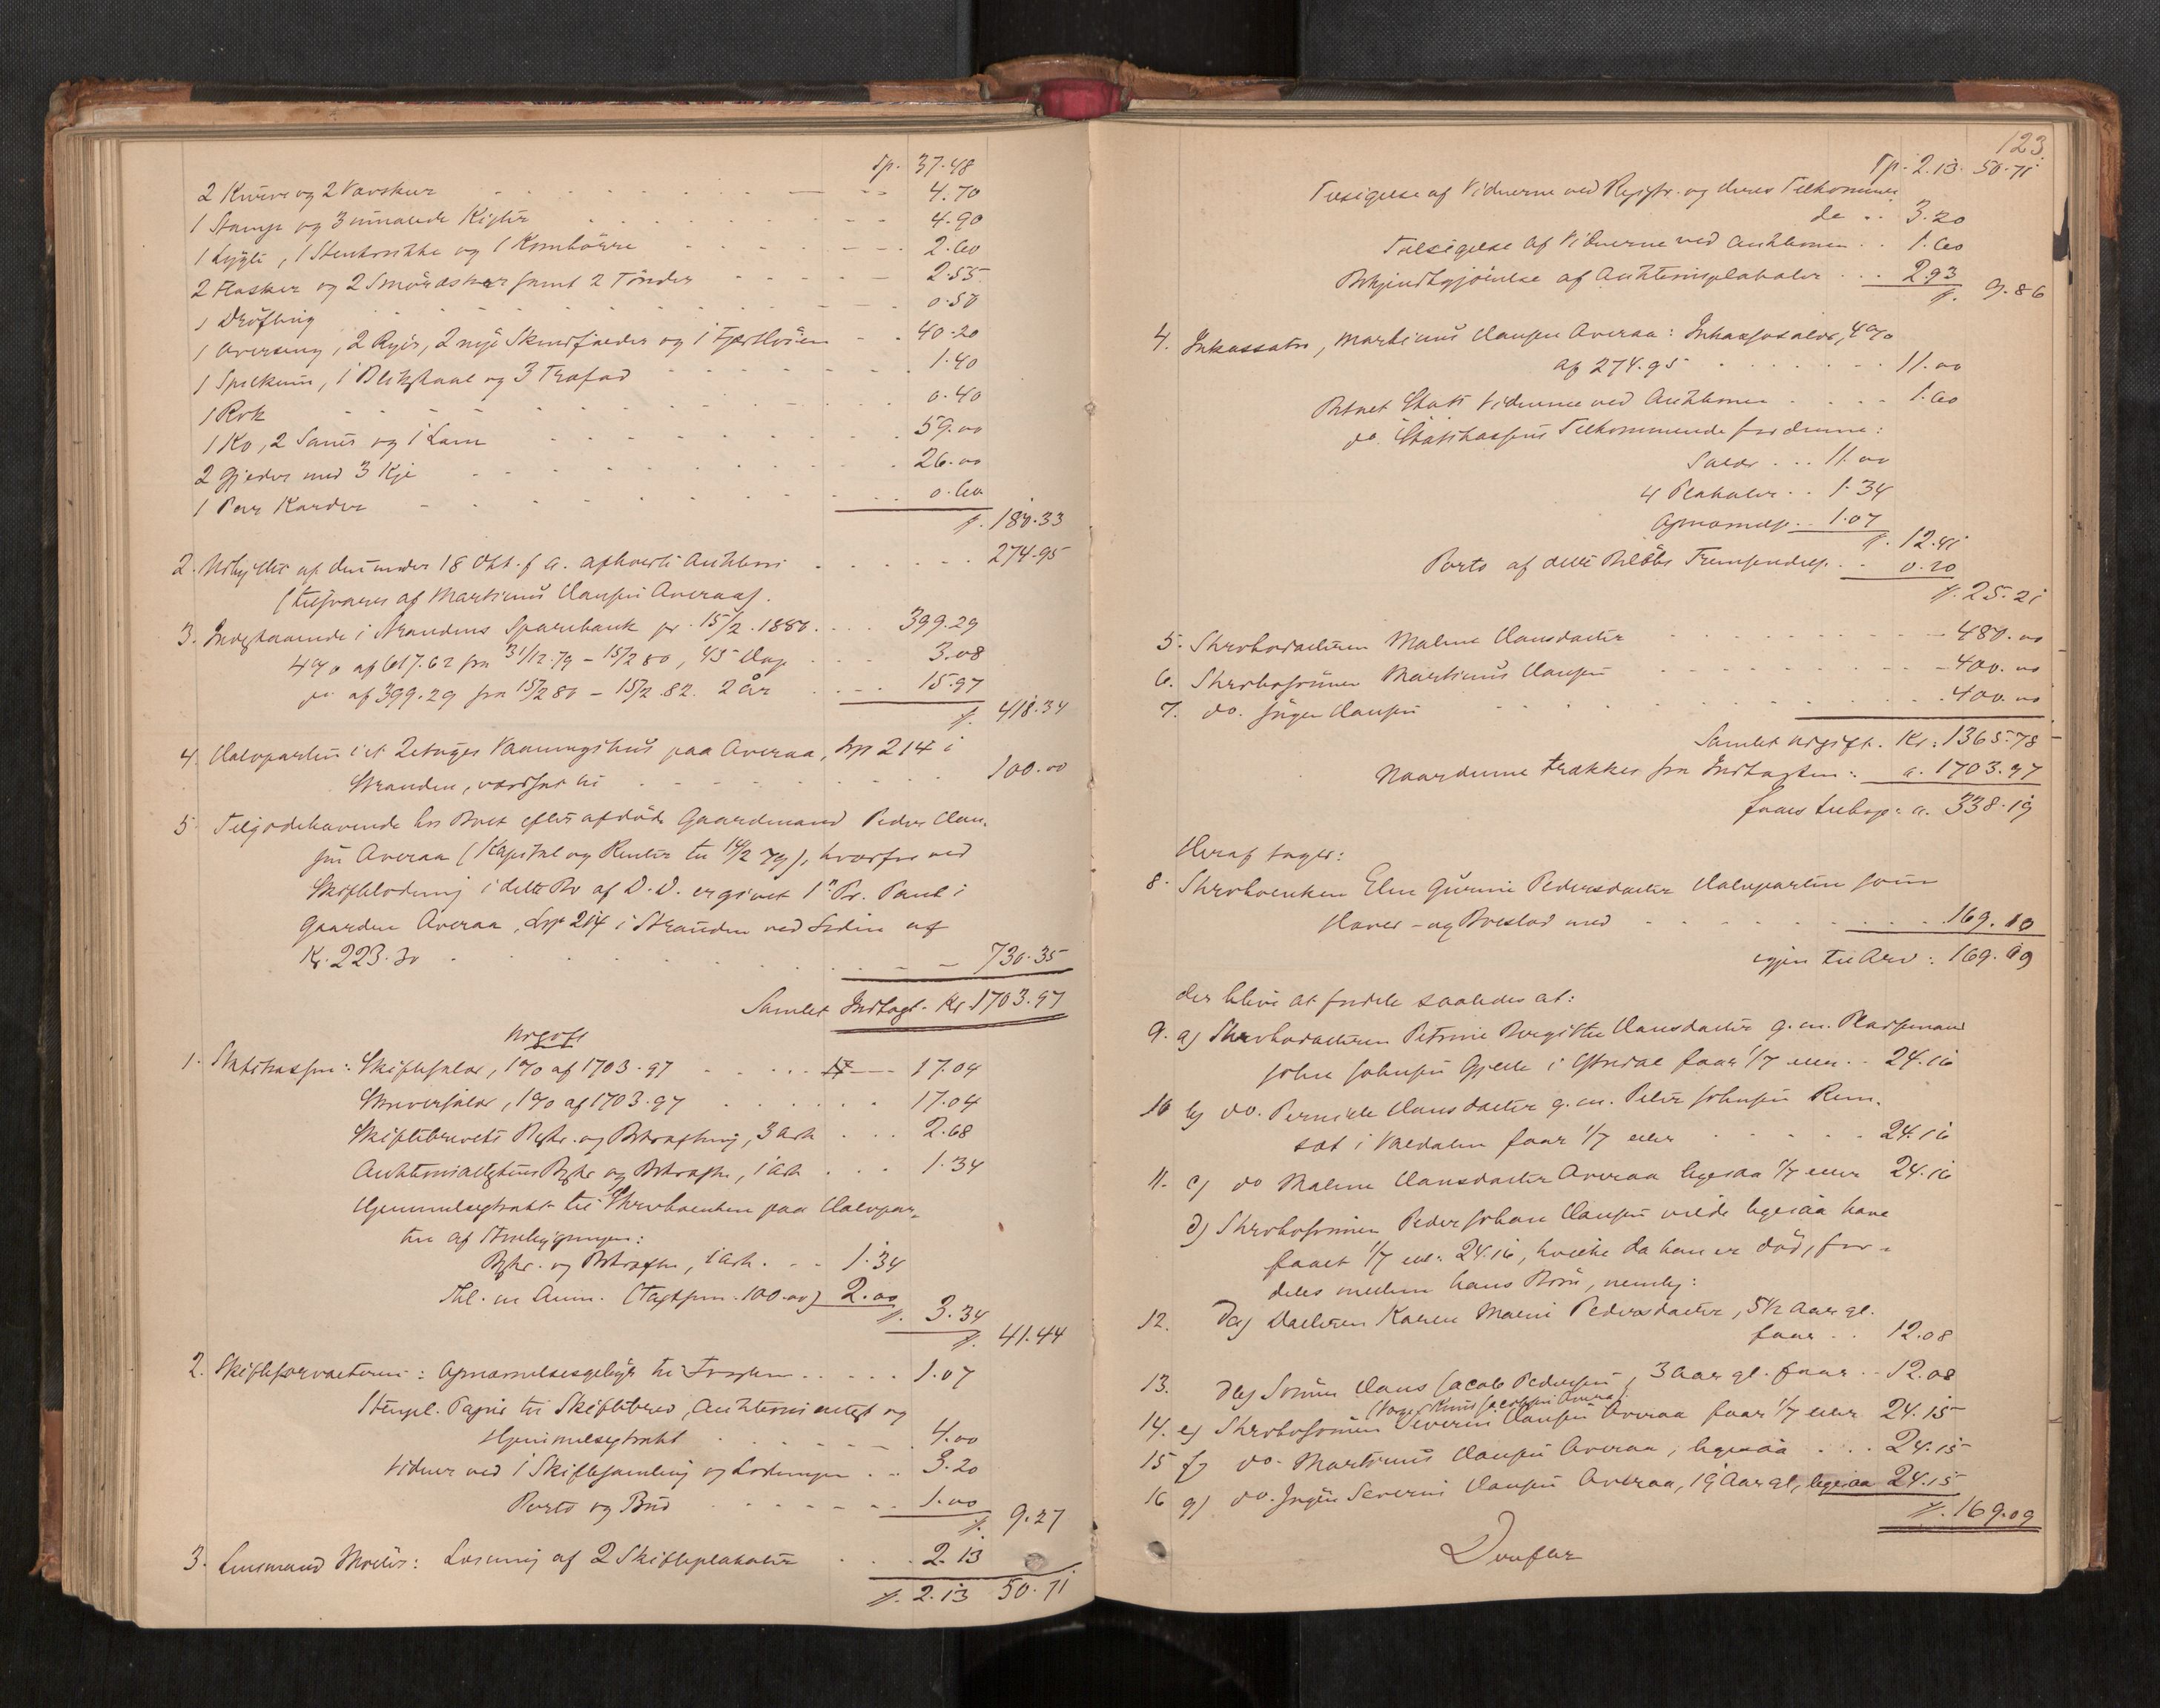 Tp. 37.48
2 Knive og 2 Vavskeer 4.70
1 Stamp og 3 umalede Kister 4.90
1 Lygte, 1 Stenkrukke og 1 Kornbörre 2.60
2 Flasker og 2 Smöræsker samt 2 Tönder 2.55
1 Dröfting 0.50
1 Overseng, 2 Ryer, 2 nye Skindfælder og 1 40.20
1 Spilkum, 1 Blikskaal og 3 Træfad 1.40
1 Rok 0.40
1 Ko, 2 Sauer og 1 Lam 59.00
2 Gjeder med 3 Kje 26.00
1 Par Karder 0.60
180.33
2. Udbyttet af den under 18 Okt. f. a. afholdte Auktion 274.95
(tilsvares af Martinus Hansen Overaa).
3. Indestaaende i Strandens Sparebank pr. 15/2. 1880. 399.29
4% af 617.62 fra 31/12.79 - 15/2 80, 45 Dage 3.08
do af 399.29 fra 15/2 80 - 15/2.82. 2 År 15.97
418.34
4. Halvparten i et 2etages Vaaningshus paa Overaa, Lnr 214 i
Stranden, værdsat til 100.00
5. Tilgodehavende hos Boet efter afdöde Gaardmand Peder Han-
sen Overaa (Kapital og Renter til 14/2 79), hvorfor ved
Skiftelodning i dette Bo af D.D. er givet 1ste Pr. Pant i
Gaarden Overaa, Lnr 214 i Stranden ved Siden af
Kr. 223.30 730.35
Samlet Indtægt - Kr 1703.97
Udgift
1. Statskassen: Skiftesalær, 1% af 1703.97 17.04
Skriversalær, 1% af 1703.97 17.04
Skiftebrevets Beskr. og Bekræftning, 3 Ark 2.68
Auktionsattestens Beskr og Bekræftn, 1 Ark 1.34
Hjemmelsextrakt til Skrboenken paa Halvpar-
ten af Bebygningen:
Beskr. og Bekræftn, 1 Ark. 1.34
Thl. m Anm. (Taxtsum. 100.00) 2.00
3.34
41.44
2. Skifteforvalteren: Opnævnelsesgebyr til Fogden 1.07
Stempl. Papir til Skiftebrev, Auktionsattest og
Hjemmelsextrakt 4.00
Vidner ved 1 Skiftesamling og Lodningen 3.20
Porto og Bud 1.00
9.27
3. Lensmand Möller: Læsning af 2 Skifteplakater 2.13
2.13 50.71
123
Tp. 2.13. 50.71
Tilsigelse af Vidnerne ved Registr. og deres Tilkommen
de 3.20
Tilsigelse af Vidnerne ved Auktionen 1.60
Bekjendtgjörelse af Auktionsplakater 2.93
9.86
4. Inkassator, Martinus Hansen Overaa: Inkassosalær, 4%
af 274.95 11.00
Betalt Vidnerne ved Auktionen 1.60
do. Statskassens Tilkommende for denne:
Salær 11.00
4 Plakater 1.34
Opnævnelse 1.07
12.41
Porto af dette Belöbs Fremsendelse 0.20
25.21
5. Skrbodatteren Maline Hansdatter 480.00
6. Skrbosönnen Martinus Hansen 400.00
7. do. Ingen Hansen 400.00
Samlet Udgift. Kr: 1365.78
Naar denne trækkes fra Indtægten: 1703.97
faaes tilbage: 338.19
Heraf tages:
8. Skrboenken Elen Gurine Pedersdatter Halvparten som
Haver- og Boeslod med 169.10
igjen til Arv: 169.09
der blive at fordele saaledes at:
9. a) Skrbodatteren Petrine Birgitte Hansdatter g. m. Pladsmand
Johan Johnsen Gjelle i faar 1/7 eller 24.16
10 b) do. Pernille Hansdatter g. m. Peter Johnsen Rem-
sæt i Valdalen faar 1/7 eller 24.16
11. c) do Maline Hansdatter Overaa ligesaa 1/7 eller 24.16
d) Skrbosönnen Peder Johan Hansen vilde ligesaa have
faaet 1/7 eller 24.16, hvilke da han er död, for-
deles mellem hans Börn, nemlig:
12. Da) Datteren Karen Marie Pedersdatter, 5 1/2 Aar gl.
faar 12.08
13. Db) Sönnen Hans Jacob Pedersen, 3 Aar gl. faar 12.08
(Værge: Knud Jacobsen Overaa)
14. e) Skrbosönnen Severin Hansen Overaa faar 1/7 eller 24.15
15 f) do. Martinus Hansen Overaa, ligesaa 24.15
16 g) do. Ingen Severin Hansen Overaa, 19 Aar gl, ligesaa 24.15
169.09